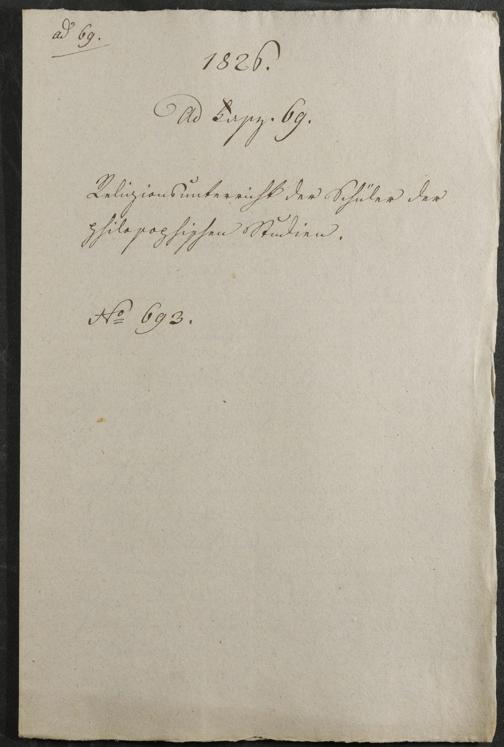 ad 69.
1826.
Ad Fasz. 69.
Religionsunterricht der Schüler der
philosophischen Studien.
No 693.